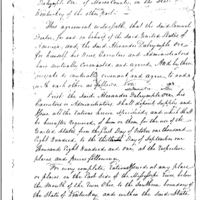 Dalrymple Esr. of Mercer County, in the State of
Kentucky of the other part—
This agreement witnesseth, that the said Samuel
Dexter, for and on behalf of the said United States of
America, and the said Alexander Dalrymple Orr
for himself his heirs Executors and Administrators
have mutually Covenanted and agreed, And by these
presents do mutually covenant and agree, to and
with each other as follows. Viz:
First. The said Alexander Dalrymple Orr, his
Executors or Administrators, shall deposit supplies and
issue all the rations herein specified, and which shall
be hereafter required, of him or them for the use of the
United States from the first Day of October one thousand
Eight Hundred, to the thirtieth Day of September one
Thousand Eight Hundred and one, at the respective
places and prices following
For every complete Ration issued at any place
or places on the East side of the Mississippi River, below
the Mouth of the River Ohio to the Southern boundary of
the State of Kentucky, and within the said State